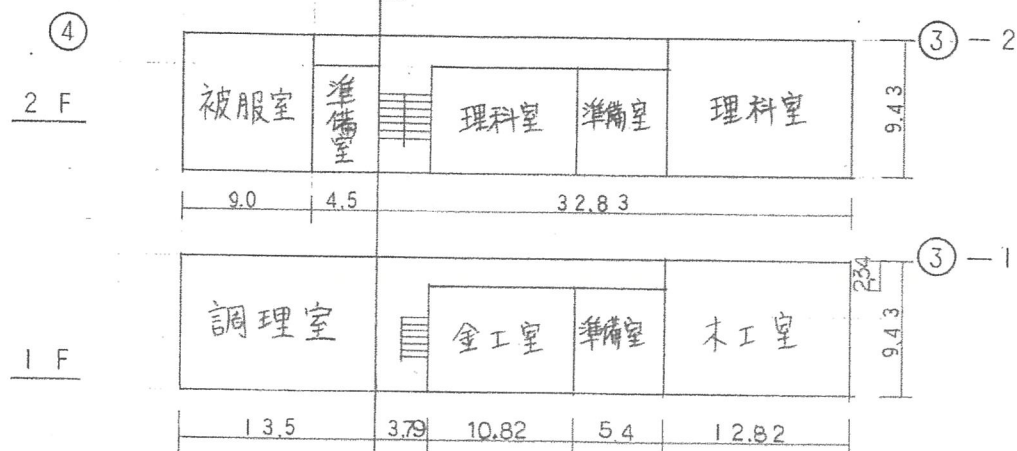 ④
③-2
2F
被服室 準備室 理科室 準備室 理科室
9.43
9.0 4.5 32.83
③-1
2.34
1F
調理室 金工室 準備室 木工室
9.43
13.5 3.79 10.82 5.4 12.82